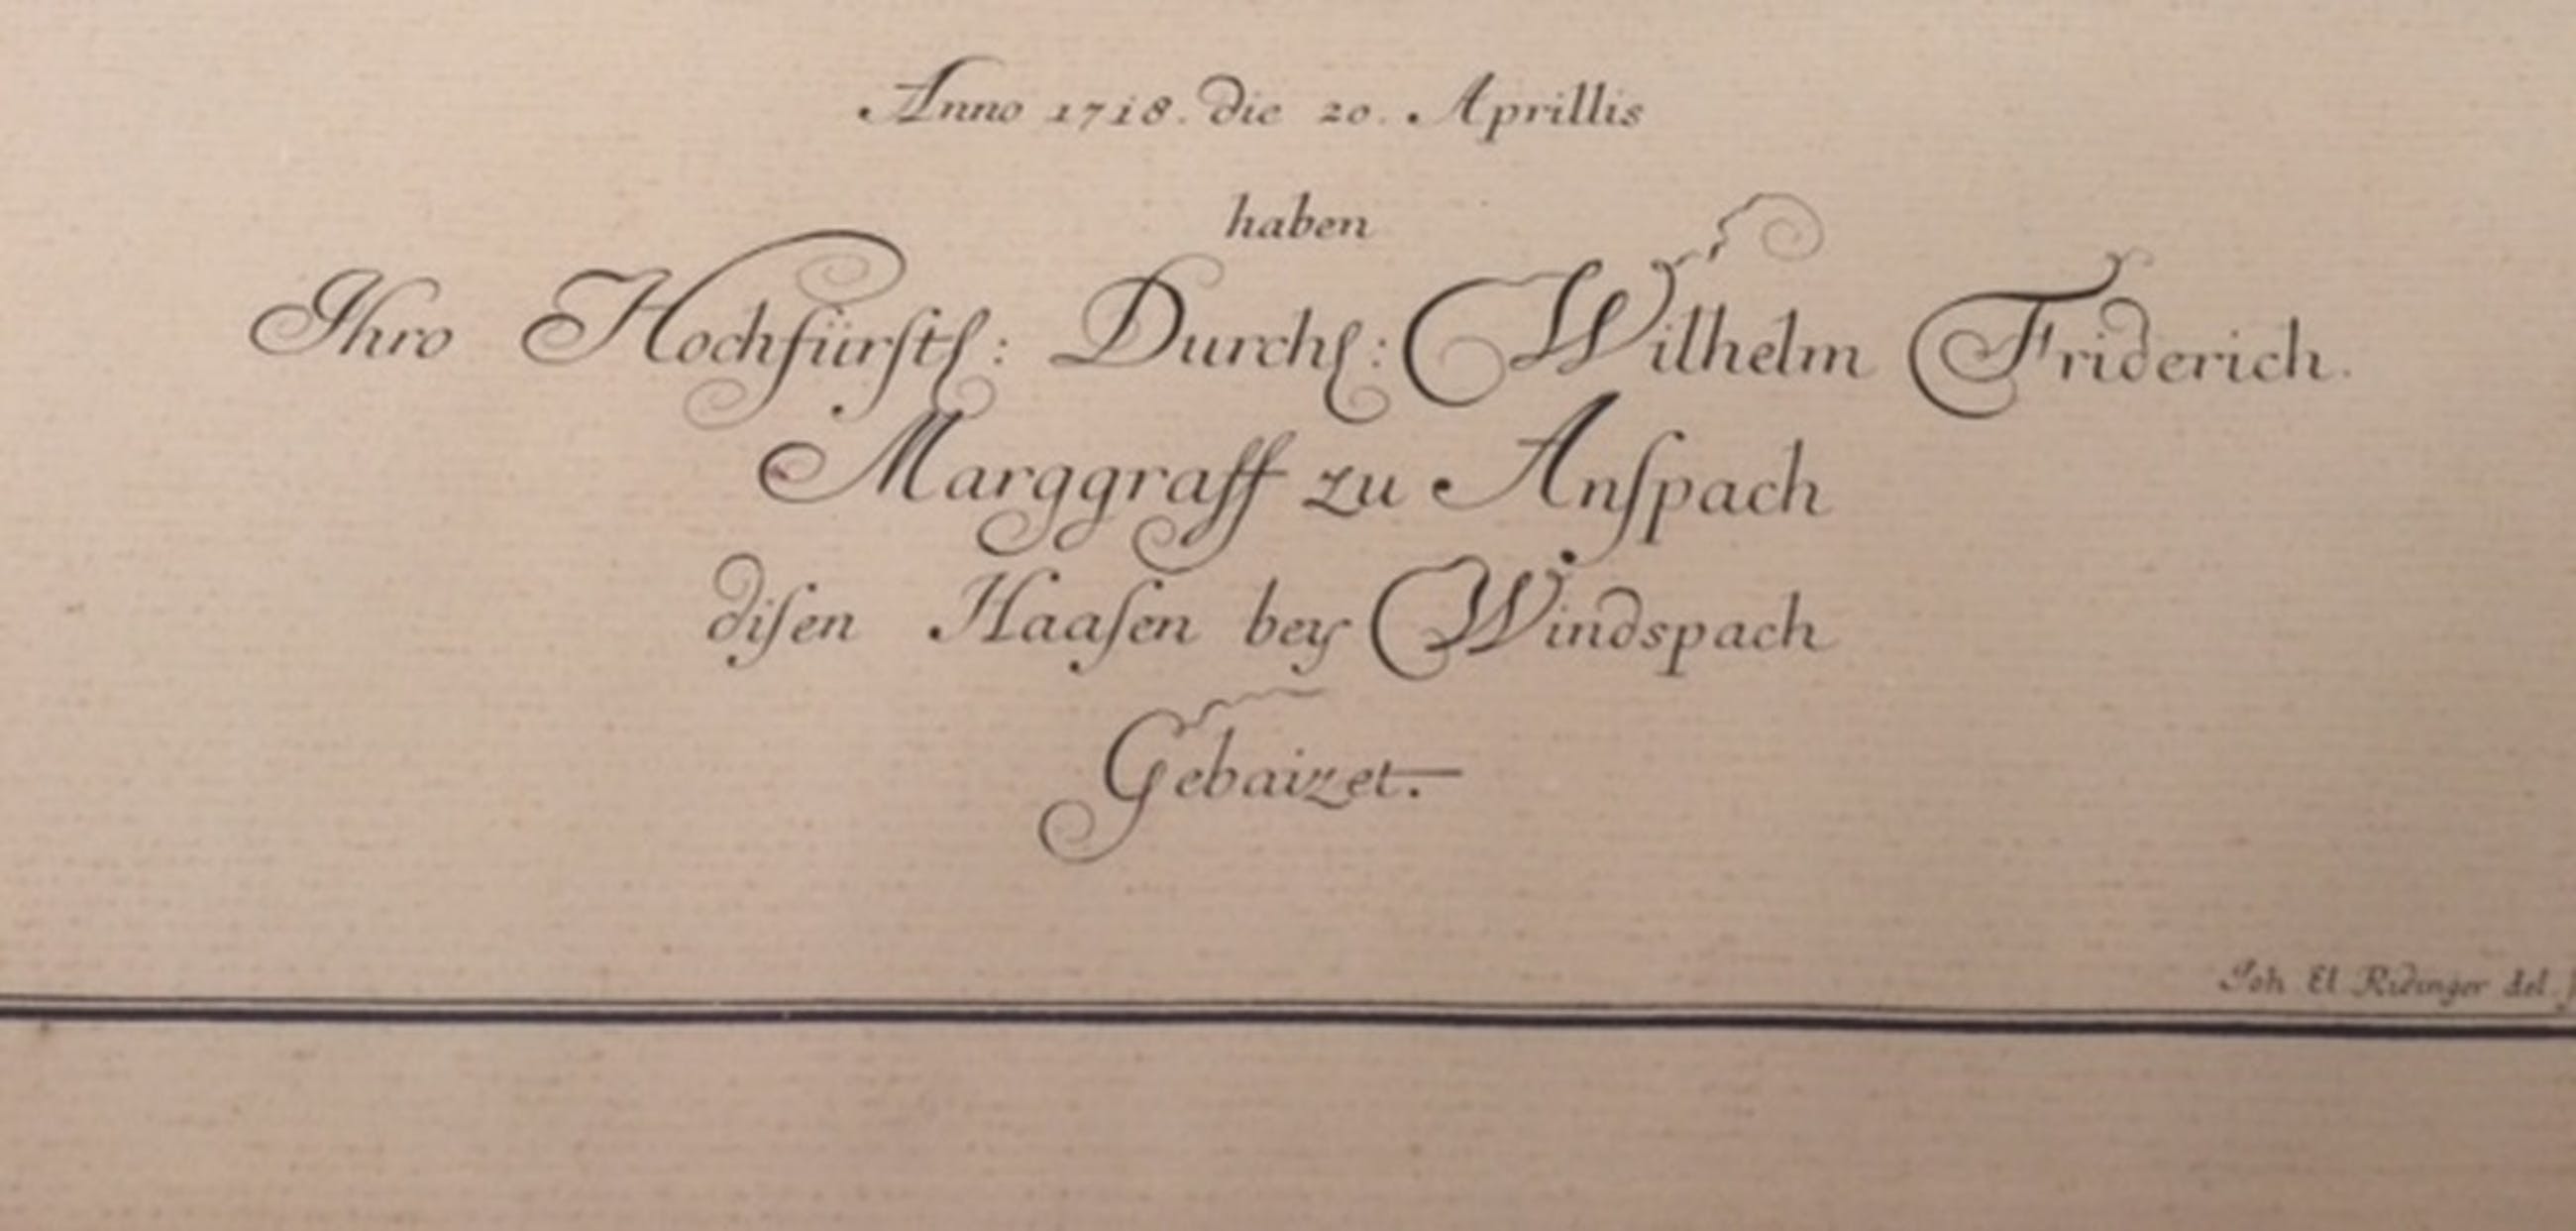 Anno 1718. die 20. Aprillis
haben
Ihro Hochfürstl: Durchl: Wilhelm Friderich.
Marggraff zu Anſpach
diſen Haaſen bey Windspach
Gebaizet.
Joh. El. Ridinger del.